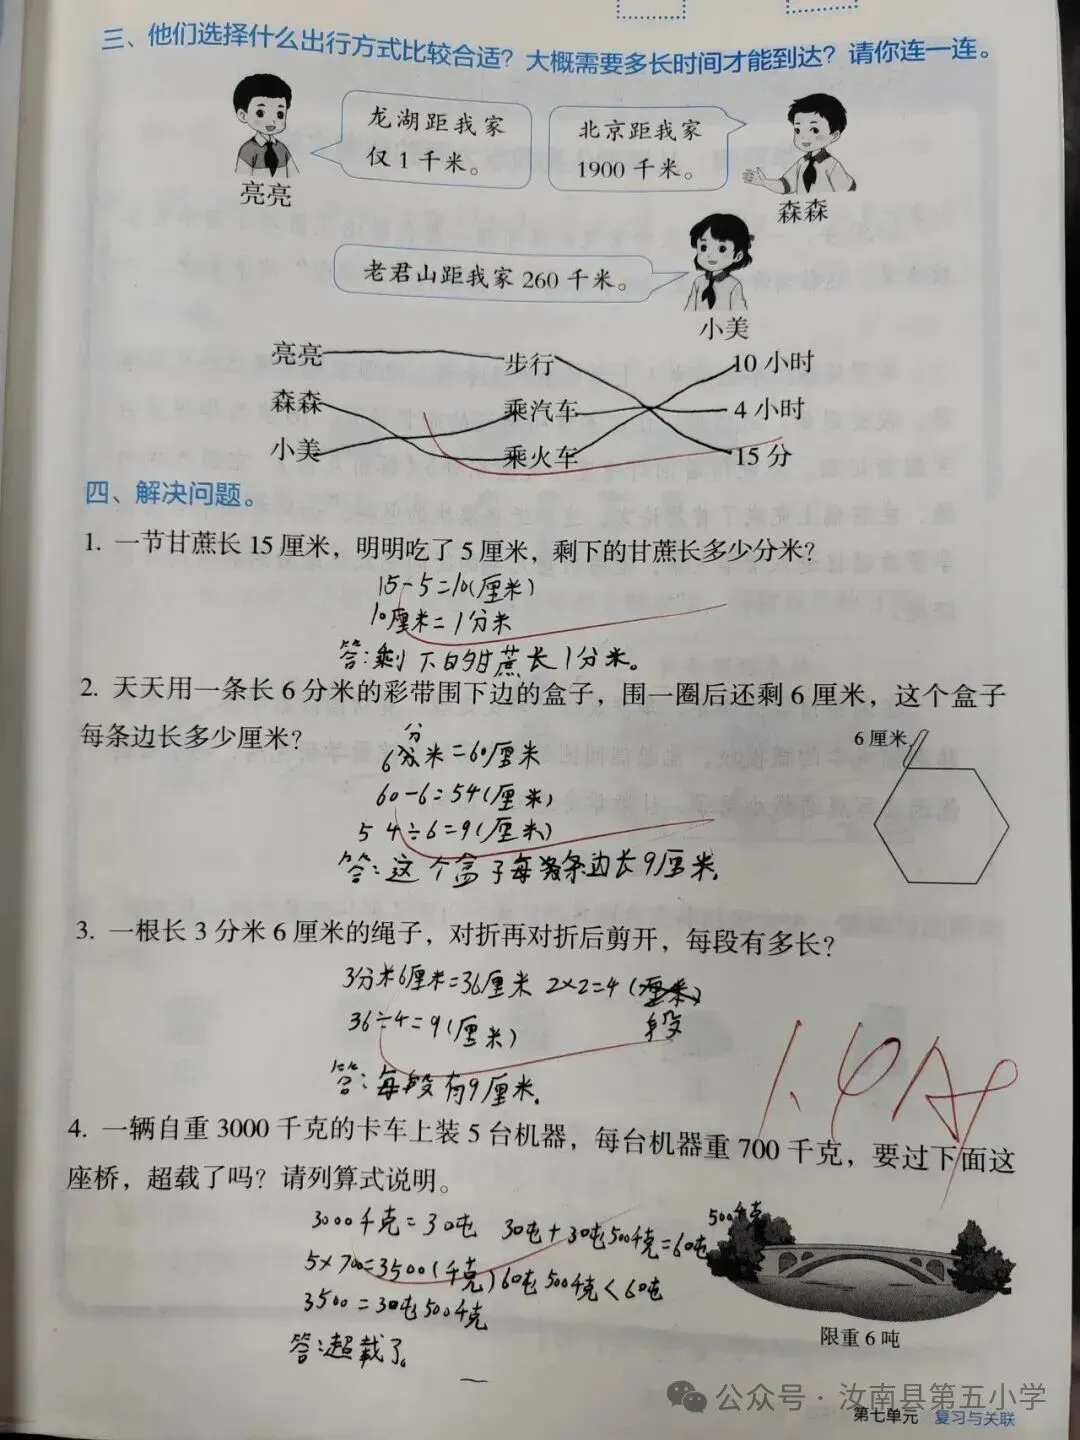 三、他们选择什么出行方式比较合适？大概需要多长时间才能到达？请你连一连。
龙湖距我家
仅1千米。
亮亮
北京距我家
1900千米。
森森
老君山距我家260千米。
小美
亮亮 步行 10小时
森森 乘汽车 4小时
小美 乘火车 15分
四、解决问题。
1. 一节甘蔗长15厘米，明明吃了5厘米，剩下的甘蔗长多少分米？
15-5=10(厘米)
10厘米=1分米
答:剩下的甘蔗长1分米。
2. 天天用一条长6分米的彩带围下边的盒子，围一圈后还剩6厘米，这个盒子
每条边长多少厘米？
6厘米
分
6分米=60厘米
60-6=54(厘米)
54÷6=9(厘米)
答:这个盒子每条边长9厘米.
3. 一根长3分米6厘米的绳子，对折再对折后剪开，每段有多长？
3分米6厘米=36厘米 2×2=4(厘米)
段
36÷4=9(厘米)
答:每段有9厘米.
4. 一辆自重3000千克的卡车上装5台机器，每台机器重700千克，要过下面这
座桥，超载了吗？请列算式说明。
3000千克=30吨 30吨+30吨500千克=60吨500千克
5×700=3500(千克) 60吨500千克<60吨
3500=30吨500千克
答:超载了。
限重6吨
公众号·汝南县第五小学
第七单元 复习与关联